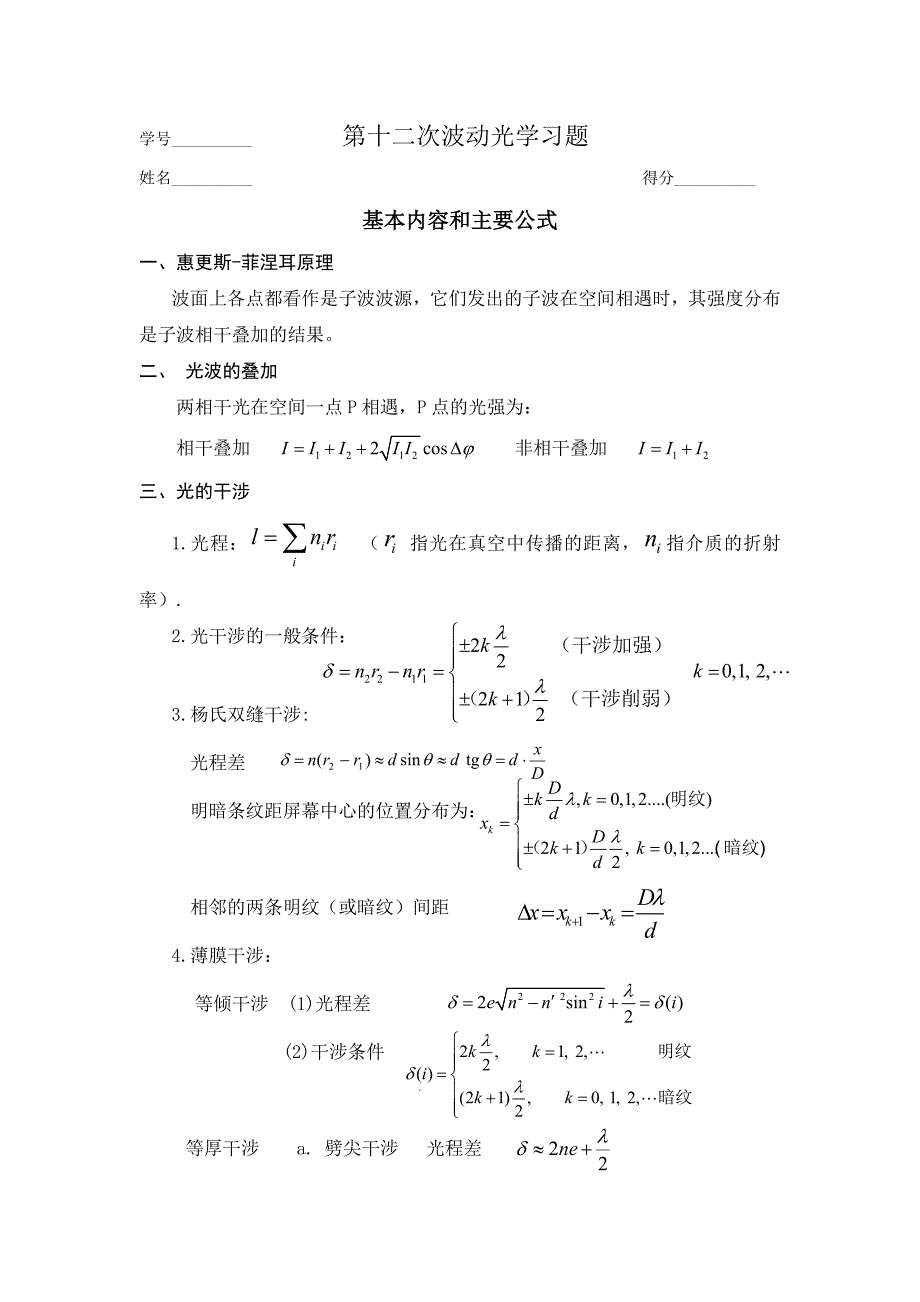 学号__________ 第十二次波动光学习题
姓名__________ 得分__________
基本内容和主要公式
一、惠更斯-菲涅耳原理
波面上各点都看作是子波波源，它们发出的子波在空间相遇时，其强度分布
是子波相干叠加的结果。
二、 光波的叠加
两相干光在空间一点 P 相遇，P 点的光强为：
相干叠加 I = I₁ + I₂ + 2√(I₁I₂) cos Δφ 非相干叠加 I = I₁ + I₂
三、光的干涉
1.光程：l = ∑ᵢ nᵢrᵢ （ rᵢ 指光在真空中传播的距离，nᵢ 指介质的折射
率）.
2.光干涉的一般条件：
δ = n₂r₂ − n₁r₁ = { ±2k λ/2 （干涉加强） k = 0,1, 2,⋯
±（2k+1）λ/2 （干涉削弱）
3.杨氏双缝干涉:
光程差 δ = n(r₂ − r₁) ≈ d sin θ ≈ d tg θ = d · x/D
明暗条纹距屏幕中心的位置分布为： xₖ = { ±k D/d λ, k = 0,1,2....(明纹)
±（2k+1）D/d λ/2, k = 0,1,2...( 暗纹)
相邻的两条明纹（或暗纹）间距 Δx = xₖ₊₁ − xₖ = Dλ/d
4.薄膜干涉：
等倾干涉 (1)光程差 δ = 2e√(n² − n′²sin²i) + λ/2 = δ(i)
(2)干涉条件 δ(i) = { 2k λ/2, k = 1, 2,⋯ 明纹
(2k+1) λ/2, k = 0, 1, 2,⋯暗纹
等厚干涉 a. 劈尖干涉 光程差 δ ≈ 2ne + λ/2